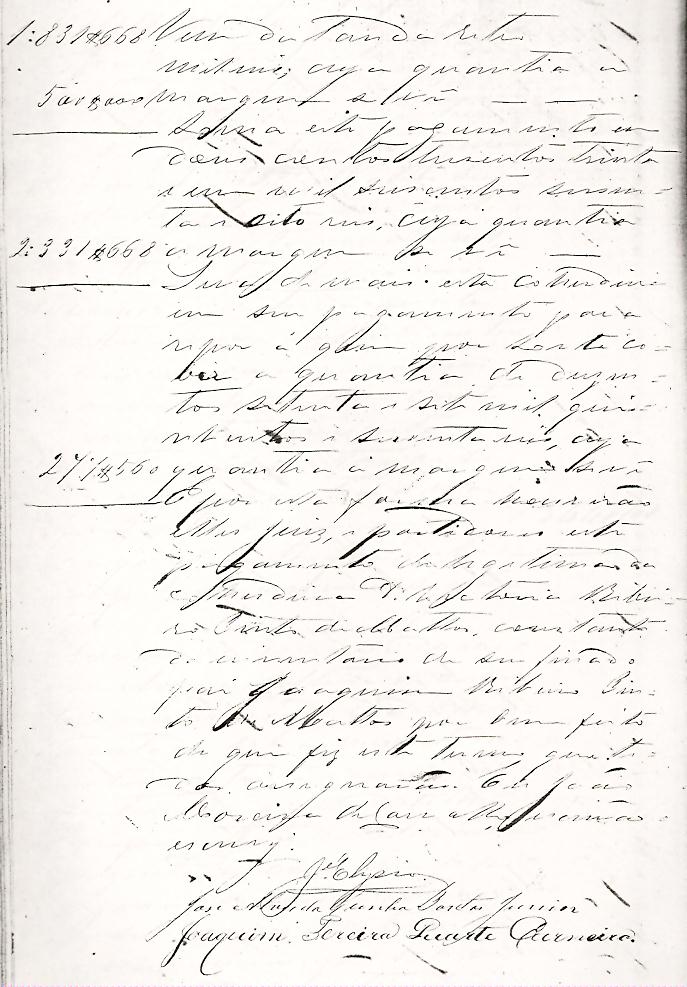 1:831$668
mil reis, cuja quantia a
500$000 margem se vê
Soma este pagamento em
dous contos tresentos trinta
e um mil seiscentos sessen-
ta e oito reis, cuja quantia
2:331$668 a margem se vê
de mais esta coherdeira
em seu pagamento para
repor á quem por sorte co-
ber a quantia de dusen-
tos setenta e sete mil quin-
hentos e sessenta reis, cuja
277$560 quantia á margem se vê
E por esta forma houverão
elles Juiz, e partidores este
pagamento da legitima da
coherdeira D. Ribei-
ro Pinto de Mattos, constante
do inventario de seu finado
pai Joaquim Ribeiro Pin-
to de Mattos por bem feito
de que fiz este termo que to-
dos assignarão. Eu João
Moreira de Escrivão
escrevy.
José da Cunha Bastos Junior
Joaquim Pereira Duarte Carneiro.